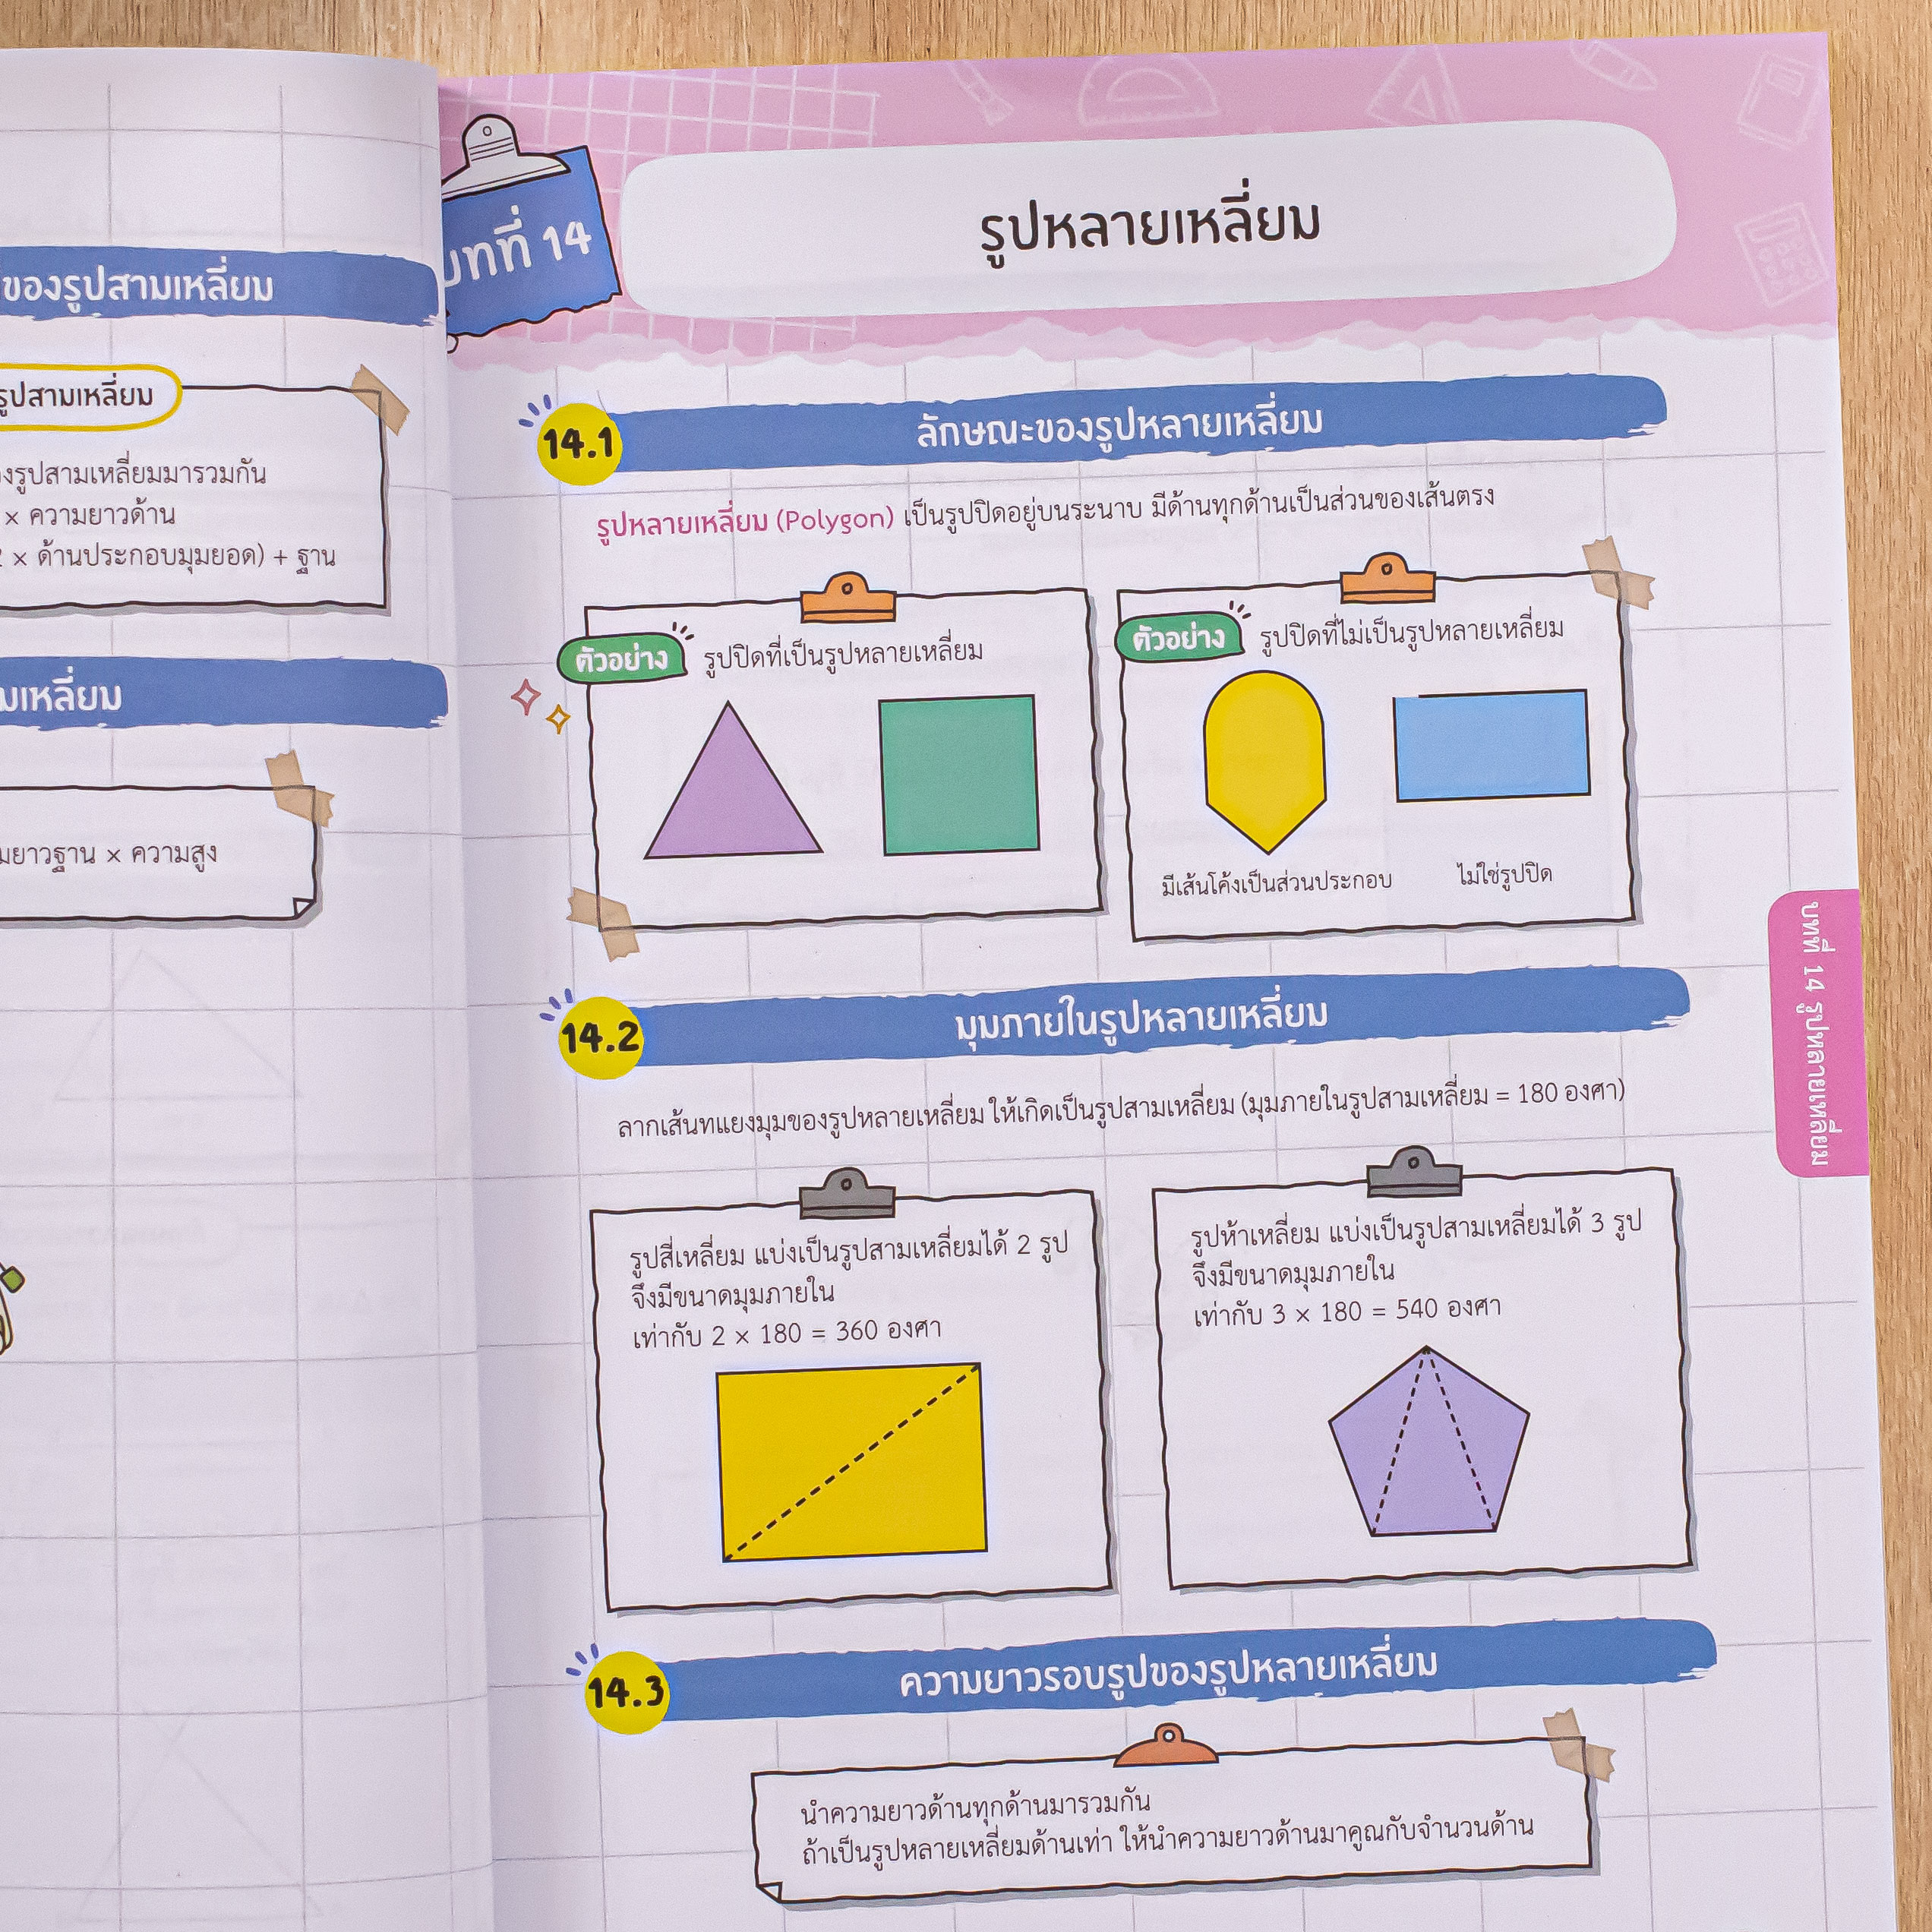 ของรูปสามเหลี่ยม
รูปสามเหลี่ยม
ของรูปสามเหลี่ยมมารวมกัน
× ความยาวด้าน
× ด้านประกอบมุมยอด) + ฐาน
× ความสูง
บทที่ 14
รูปหลายเหลี่ยม
14.1 ลักษณะของรูปหลายเหลี่ยม
รูปหลายเหลี่ยม (Polygon) เป็นรูปปิดอยู่บนระนาบ มีด้านทุกด้านเป็นส่วนของเส้นตรง
ตัวอย่าง รูปปิดที่เป็นรูปหลายเหลี่ยม
ตัวอย่าง รูปปิดที่ไม่เป็นรูปหลายเหลี่ยม
มีเส้นโค้งเป็นส่วนประกอบ
ไม่ใช่รูปปิด
14.2 มุมภายในรูปหลายเหลี่ยม
ลากเส้นทแยงมุมของรูปหลายเหลี่ยม ให้เกิดเป็นรูปสามเหลี่ยม (มุมภายในรูปสามเหลี่ยม = 180 องศา)
รูปสี่เหลี่ยม แบ่งเป็นรูปสามเหลี่ยมได้ 2 รูป
จึงมีขนาดมุมภายใน
เท่ากับ 2 × 180 = 360 องศา
รูปห้าเหลี่ยม แบ่งเป็นรูปสามเหลี่ยมได้ 3 รูป
จึงมีขนาดมุมภายใน
เท่ากับ 3 × 180 = 540 องศา
14.3 ความยาวรอบรูปของรูปหลายเหลี่ยม
นำความยาวด้านทุกด้านมารวมกัน
ถ้าเป็นรูปหลายเหลี่ยมด้านเท่า ให้นำความยาวด้านมาคูณกับจำนวนด้าน
บทที่ 14 รูปหลายเหลี่ยม